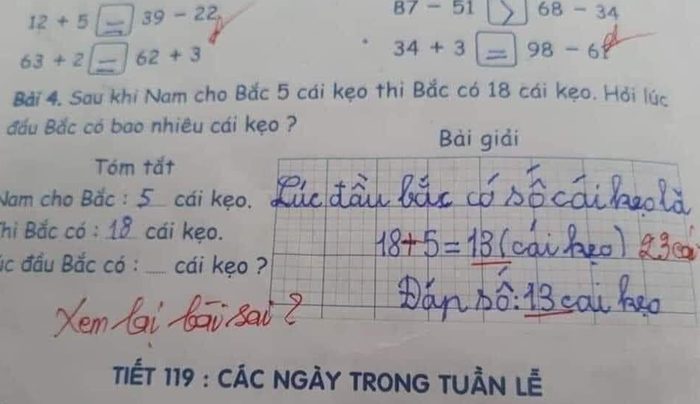 12 + 5 = 39 - 22
87 - 51 > 68 - 34
63 + 2 = 62 + 3
34 + 3 = 98 - 61
Bài 4. Sau khi Nam cho Bắc 5 cái kẹo thì Bắc có 18 cái kẹo. Hỏi lúc
đầu Bắc có bao nhiêu cái kẹo ?
Bài giải
Tóm tắt
Nam cho Bắc : 5 cái kẹo.
Lúc đầu bắc có số cái kẹo là
Thì Bắc có : 18 cái kẹo.
18+5=13 (cái kẹo) 23 cái
úc đầu Bắc có : ..... cái kẹo ?
Đáp số: 13 cai kẹo
Xem lại bài sai ?
TIẾT 119 : CÁC NGÀY TRONG TUẦN LỄ